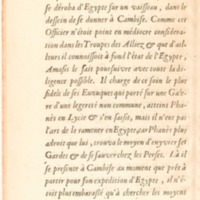 se déroba d'Egypte sur un vaisseau, dans le
dessein de se donner à Cambise. Comme cet
Officier n'étoit point en médiocre considera-
tion dans les Troupes des Alliez & que d'ail-
leurs il connoissoit à fond l'état de l'Egypte,
Amasis le fait poursuivre avec toute la di-
ligence possible. Il charge de ce soin le plus
fidéle de ses Eunuques qui porté sur une Gale-
re d'une legereté non commune, atteint Pha-
nés en Lycie & s'en saisit, mais il n'eut pas
l'art de le ramener en Egypte, car Phanés plus
adroit que lui, trouva le moyen d'enyvrer ses
Gardes & de se sauver chez les Perses. Là il
se presente à Cambise au moment que prêt à
partir pour son expedition d'Egypte, il n'é-
toit plus embarassé qu'à chercher les moyens